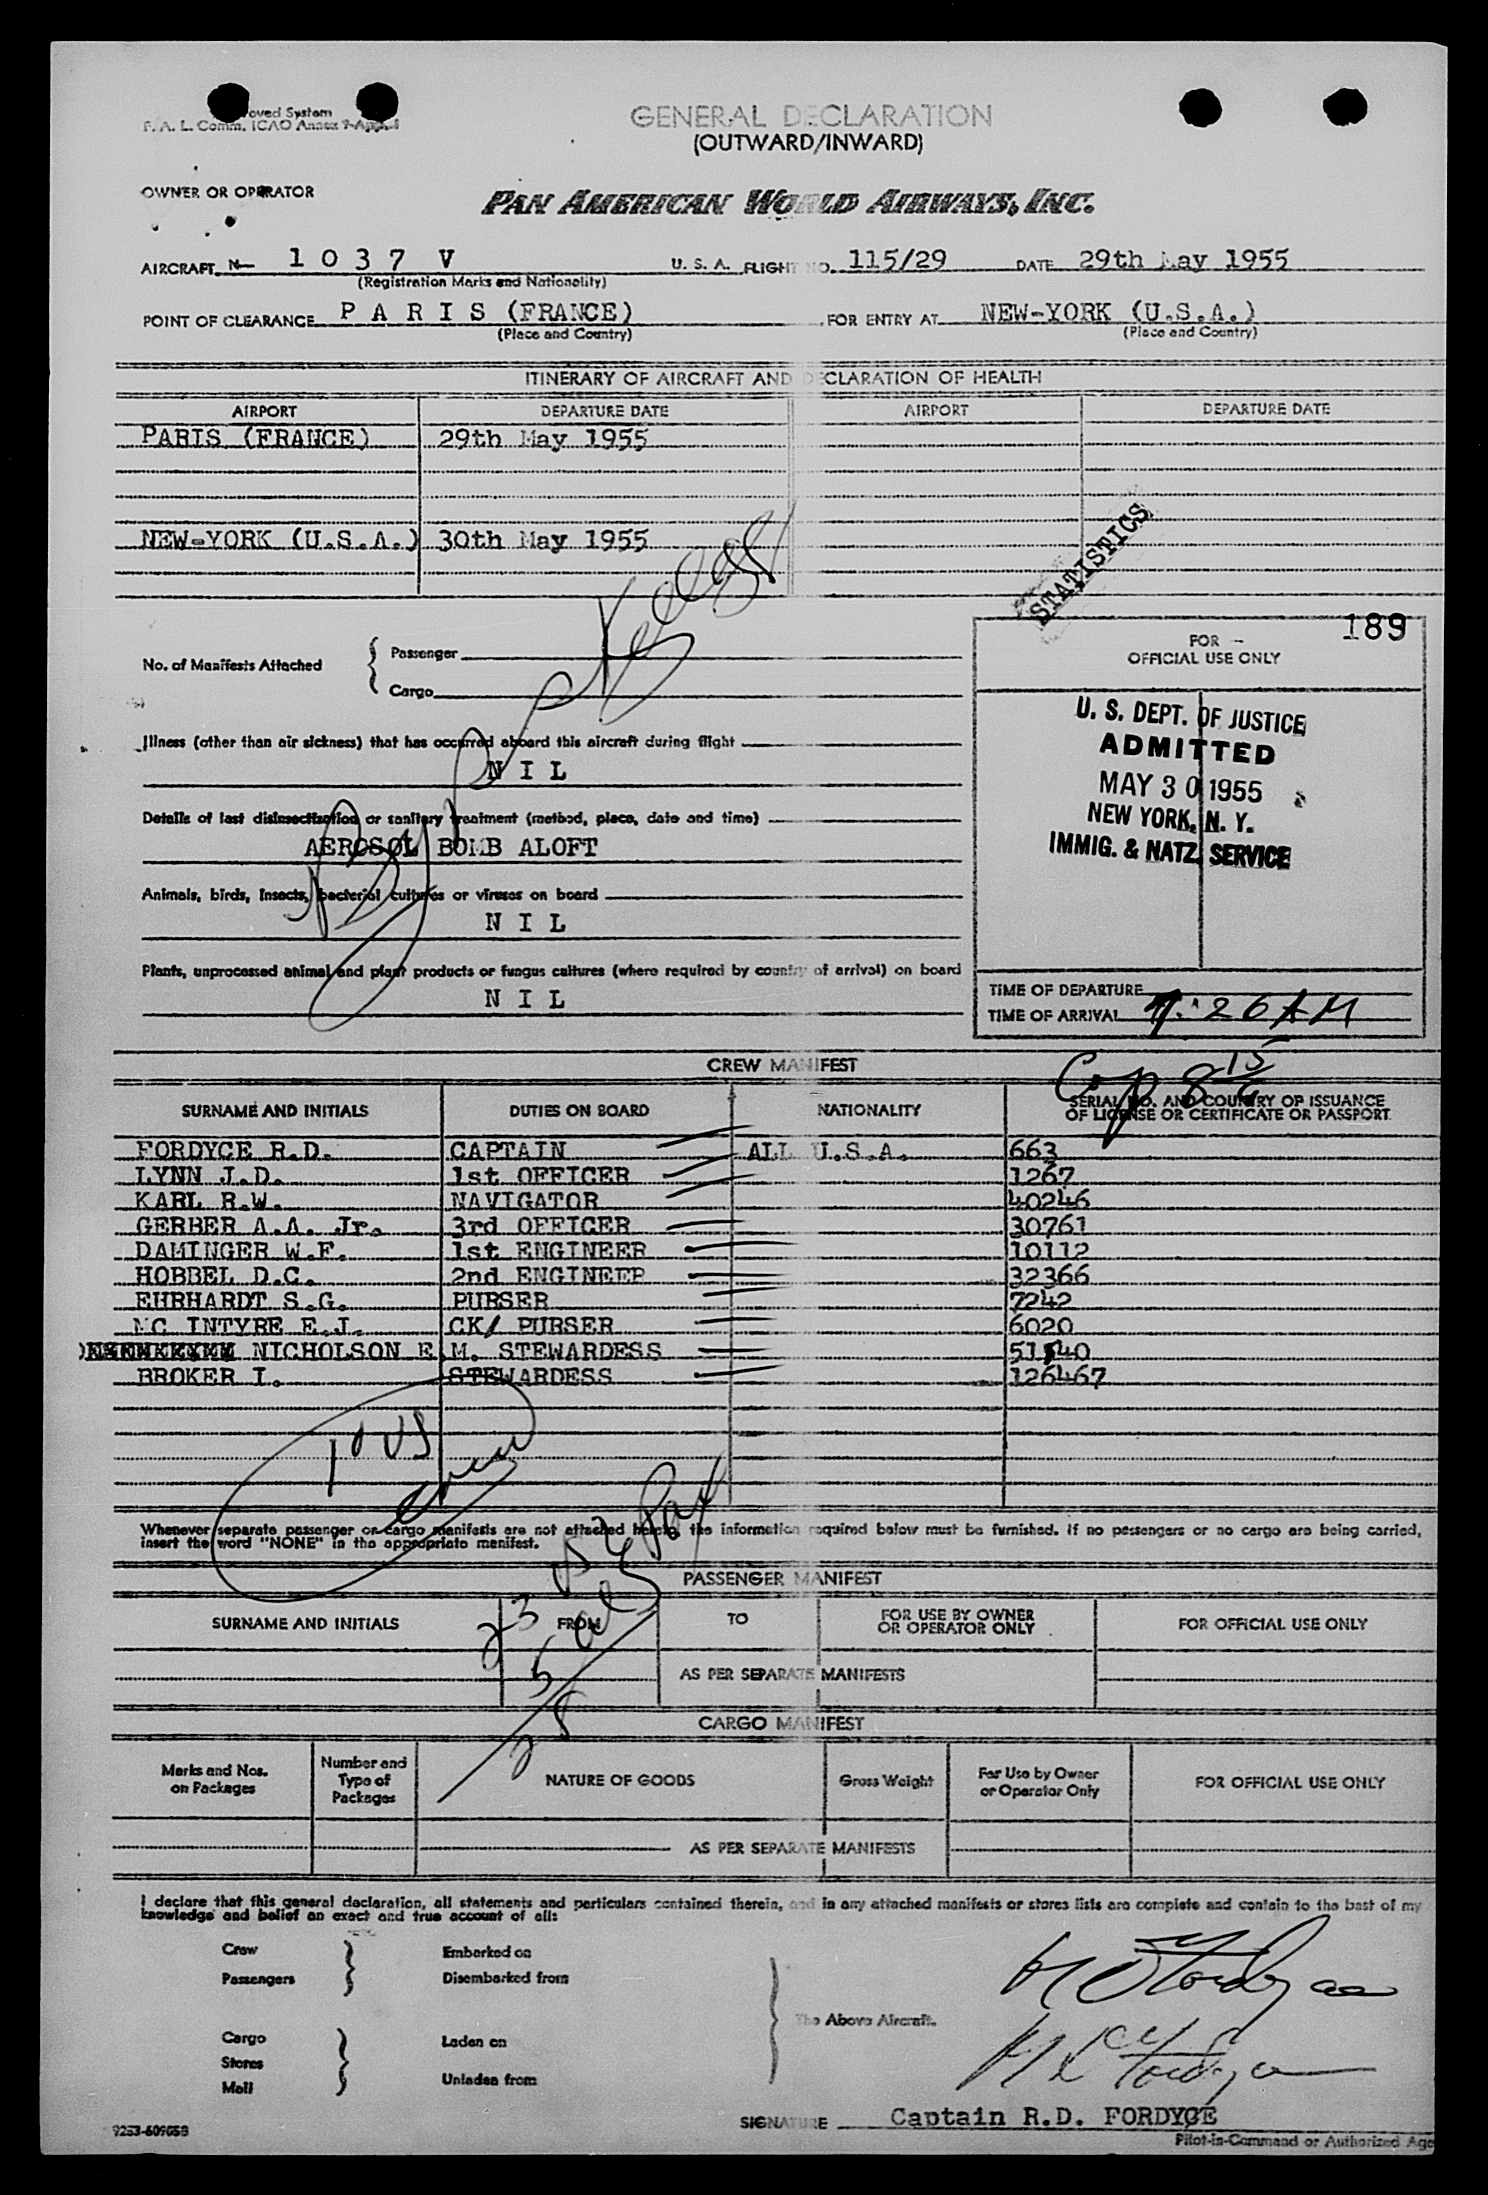 oved System
F. A. L. Comm. ICAO Annex 9-App.
GENERAL DECLARATION
(OUTWARD/INWARD)
OWNER OR OPERATOR
PAN AMERICAN WORLD AIRWAYS, INC.
AIRCRAFT N— 1 0 3 7 V U. S. A. FLIGHT NO. 115/29 DATE 29th May 1955
(Registration Marks and Nationality)
POINT OF CLEARANCE P A R I S (FRANCE) FOR ENTRY AT NEW-YORK (U.S.A.)
(Place and Country) (Place and Country)
ITINERARY OF AIRCRAFT AND DECLARATION OF HEALTH
AIRPORT DEPARTURE DATE AIRPORT DEPARTURE DATE
PARIS (FRANCE) 29th May 1955
NEW-YORK (U.S.A.) 30th May 1955
STATISTICS
189
FOR
OFFICIAL USE ONLY
No. of Manifests Attached
Passenger
Cargo
U. S. DEPT. OF JUSTICE
ADMITTED
MAY 30 1955
NEW YORK, N. Y.
IMMIG. & NATZ. SERVICE
Illness (other than air sickness) that has occurred aboard this aircraft during flight
N I L
Details of last disinsectization or sanitary treatment (method, place, date and time)
AEROSOL BOMB ALOFT
Animals, birds, insects, bacterial cultures or viruses on board
N I L
Plants, unprocessed animal and plant products or fungus cultures (where required by country of arrival) on board
N I L
TIME OF DEPARTURE
TIME OF ARRIVAL 7:26 AM
CREW MANIFEST
SURNAME AND INITIALS DUTIES ON BOARD NATIONALITY SERIAL NO. AND COUNTRY OF ISSUANCE
OF LICENSE OR CERTIFICATE OR PASSPORT
FORDYCE R.D. CAPTAIN ALL U.S.A. 663
LYNN J.D. 1st OFFICER 1267
KARL R.W. NAVIGATOR 40246
GERBER A.A. Jr. 3rd OFFICER 30761
DAMINGER W.F. 1st ENGINEER 10112
HOBBEL D.C. 2nd ENGINEER 32366
EHRHARDT S.G. PURSER 7242
MC INTYRE E.J. CK/ PURSER 6020
NICHOLSON E.M. STEWARDESS 51540
BROKER I. STEWARDESS 126467
10 US
Crew
Whenever separate passenger or cargo manifests are not attached hereto, the information required below must be furnished. If no passengers or no cargo are being carried,
insert the word "NONE" in the appropriate manifest.
PASSENGER MANIFEST
SURNAME AND INITIALS FROM TO FOR USE BY OWNER
OR OPERATOR ONLY FOR OFFICIAL USE ONLY
AS PER SEPARATE MANIFESTS
CARGO MANIFEST
Marks and Nos.
on Packages
Number and
Type of
Packages
NATURE OF GOODS
Gross Weight
For Use by Owner
or Operator Only
FOR OFFICIAL USE ONLY
AS PER SEPARATE MANIFESTS
I declare that this general declaration, all statements and particulars contained therein, and in any attached manifests or stores lists are complete and contain to the best of my
knowledge and belief an exact and true account of all:
Crew Embarked on
Passengers Disembarked from
The Above Aircraft.
Cargo Laden on
Stores
Mail Unladen from
SIGNATURE Captain R.D. FORDYCE
Pilot-in-Command or Authorized Age